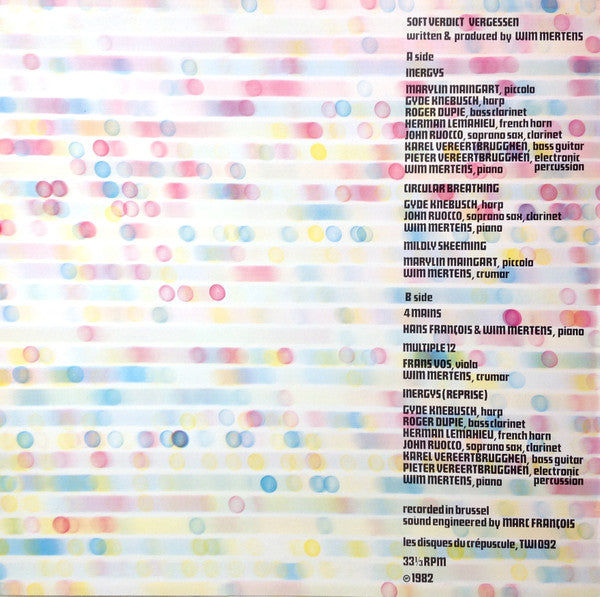 SOFT VERDICT VERGESSEN
written & produced by WIM MERTENS
A side
INERGYS
MARYLIN MAINGART, piccolo
GYDE KNEBUSCH, harp
ROGER DUPIE, bass clarinet
HERMAN LEMAHIEU, french horn
JOHN RUOCCO, soprano sax, clarinet
KAREL VEREERTBRUGGHEN, bass guitar
PIETER VEREERTBRUGGHEN, electronic
WIM MERTENS, piano percussion
CIRCULAR BREATHING
GYDE KNEBUSCH, harp
JOHN RUOCCO, soprano sax, clarinet
WIM MERTENS, piano
MILDLY SKEEMING
MARYLIN MAINGART, piccolo
WIM MERTENS, crumar
B side
4 MAINS
HANS FRANÇOIS & WIM MERTENS, piano
MULTIPLE 12
FRANS VOS, viola
WIM MERTENS, crumar
INERGYS (REPRISE)
GYDE KNEBUSCH, harp
ROGER DUPIE, bass clarinet
HERMAN LEMAHIEU, french horn
JOHN RUOCCO, soprano sax, clarinet
KAREL VEREERTBRUGGHEN, bass guitar
PIETER VEREERTBRUGGHEN, electronic
WIM MERTENS, piano percussion
recorded in brussel
sound engineered by MARC FRANÇOIS
les disques du crépuscule, TWI 092
33 1/3 RPM
℗ 1982